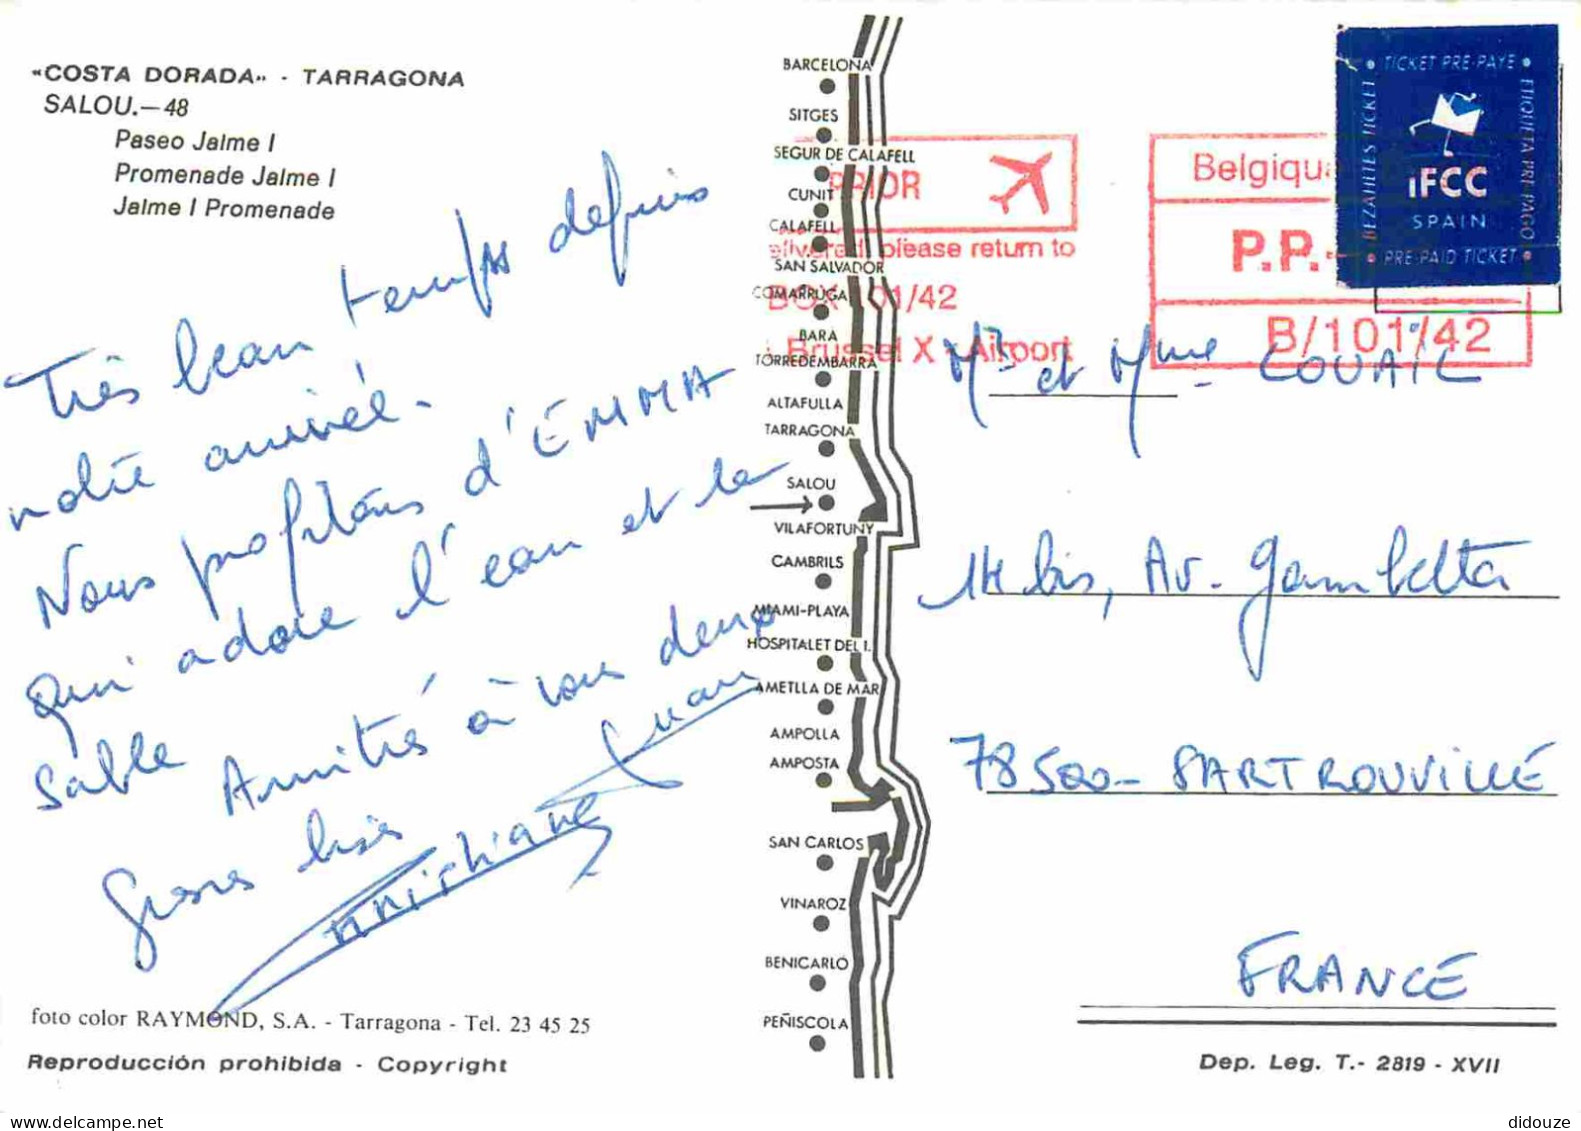 «COSTA DORADA» - TARRAGONA
SALOU.—48
Paseo Jaime I
Promenade Jaime I
Jaime I Promenade
Très beau temps depuis
notre arrivée.
Nous profitons d'EMMA
qui adore l'eau et le
sable
Amitiés à vous deux
Gross bises
foto color RAYMOND, S.A. - Tarragona - Tel. 23 45 25
Reproducción prohibida - Copyright
BARCELONA
SITGES
SEGUR DE CALAFELL
CUNIT
CALAFELL
SAN SALVADOR
COMARRUGA
BARA
TORREDEMBARRA
ALTAFULLA
TARRAGONA
SALOU
VILAFORTUNY
CAMBRILS
MIAMI-PLAYA
HOSPITALET DEL I.
AMETLLA DE MAR
AMPOLLA
AMPOSTA
SAN CARLOS
VINAROZ
BENICARLO
PEÑISCOLA
PRIOR
please return to
BOX 101/42
Brussel X - Airport
Belgiqu
P.P.-
B/101/42
• TICKET PRE-PAYE •
BEZAHLTES TICKET
ETIQUETA PRE-PAGO
iFCC
SPAIN
• PRE-PAID TICKET •
Mr et Mme COUAIL
14 bis, Av. Gambetta
78500 - SARTROUVILLE
FRANCE
Dep. Leg. T.- 2819 - XVII
didouze